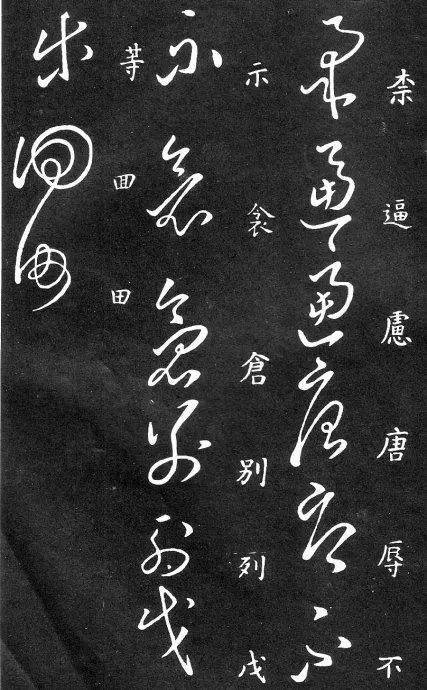 柰逼慮唐辱不
示衾倉別列戌
䓁囬田